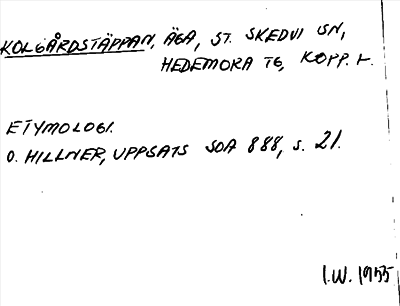 KOLGÅRDSTÄPPAN, ÄGA, ST. SKEDVI SN,
HEDEMORA TG, KOPP. L.
ETYMOLOGI.
O. HILLNER, UPPSATS SOA 888, S. 21.
I.W. 1955